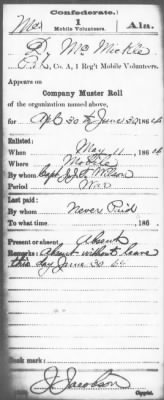 Confederate.
Mc 1 Ala.
Mobile Volunteers.
R. McMickle
Pvt, Co. A, 1 Reg't Mobile Volunteers.
Appears on
Company Muster Roll
of the organization named above,
for Apl 30 to June 30, 1864
Enlisted:
When May 11, 1864
Where Mobile
By whom Capt J. L. Wilson
Period War
Last paid:
By whom Never Paid
To what time , 186
Present or absent Absent
Remarks: Absent without leave
this day June 30 64
Book mark:
J. Jacobson
Copyist.